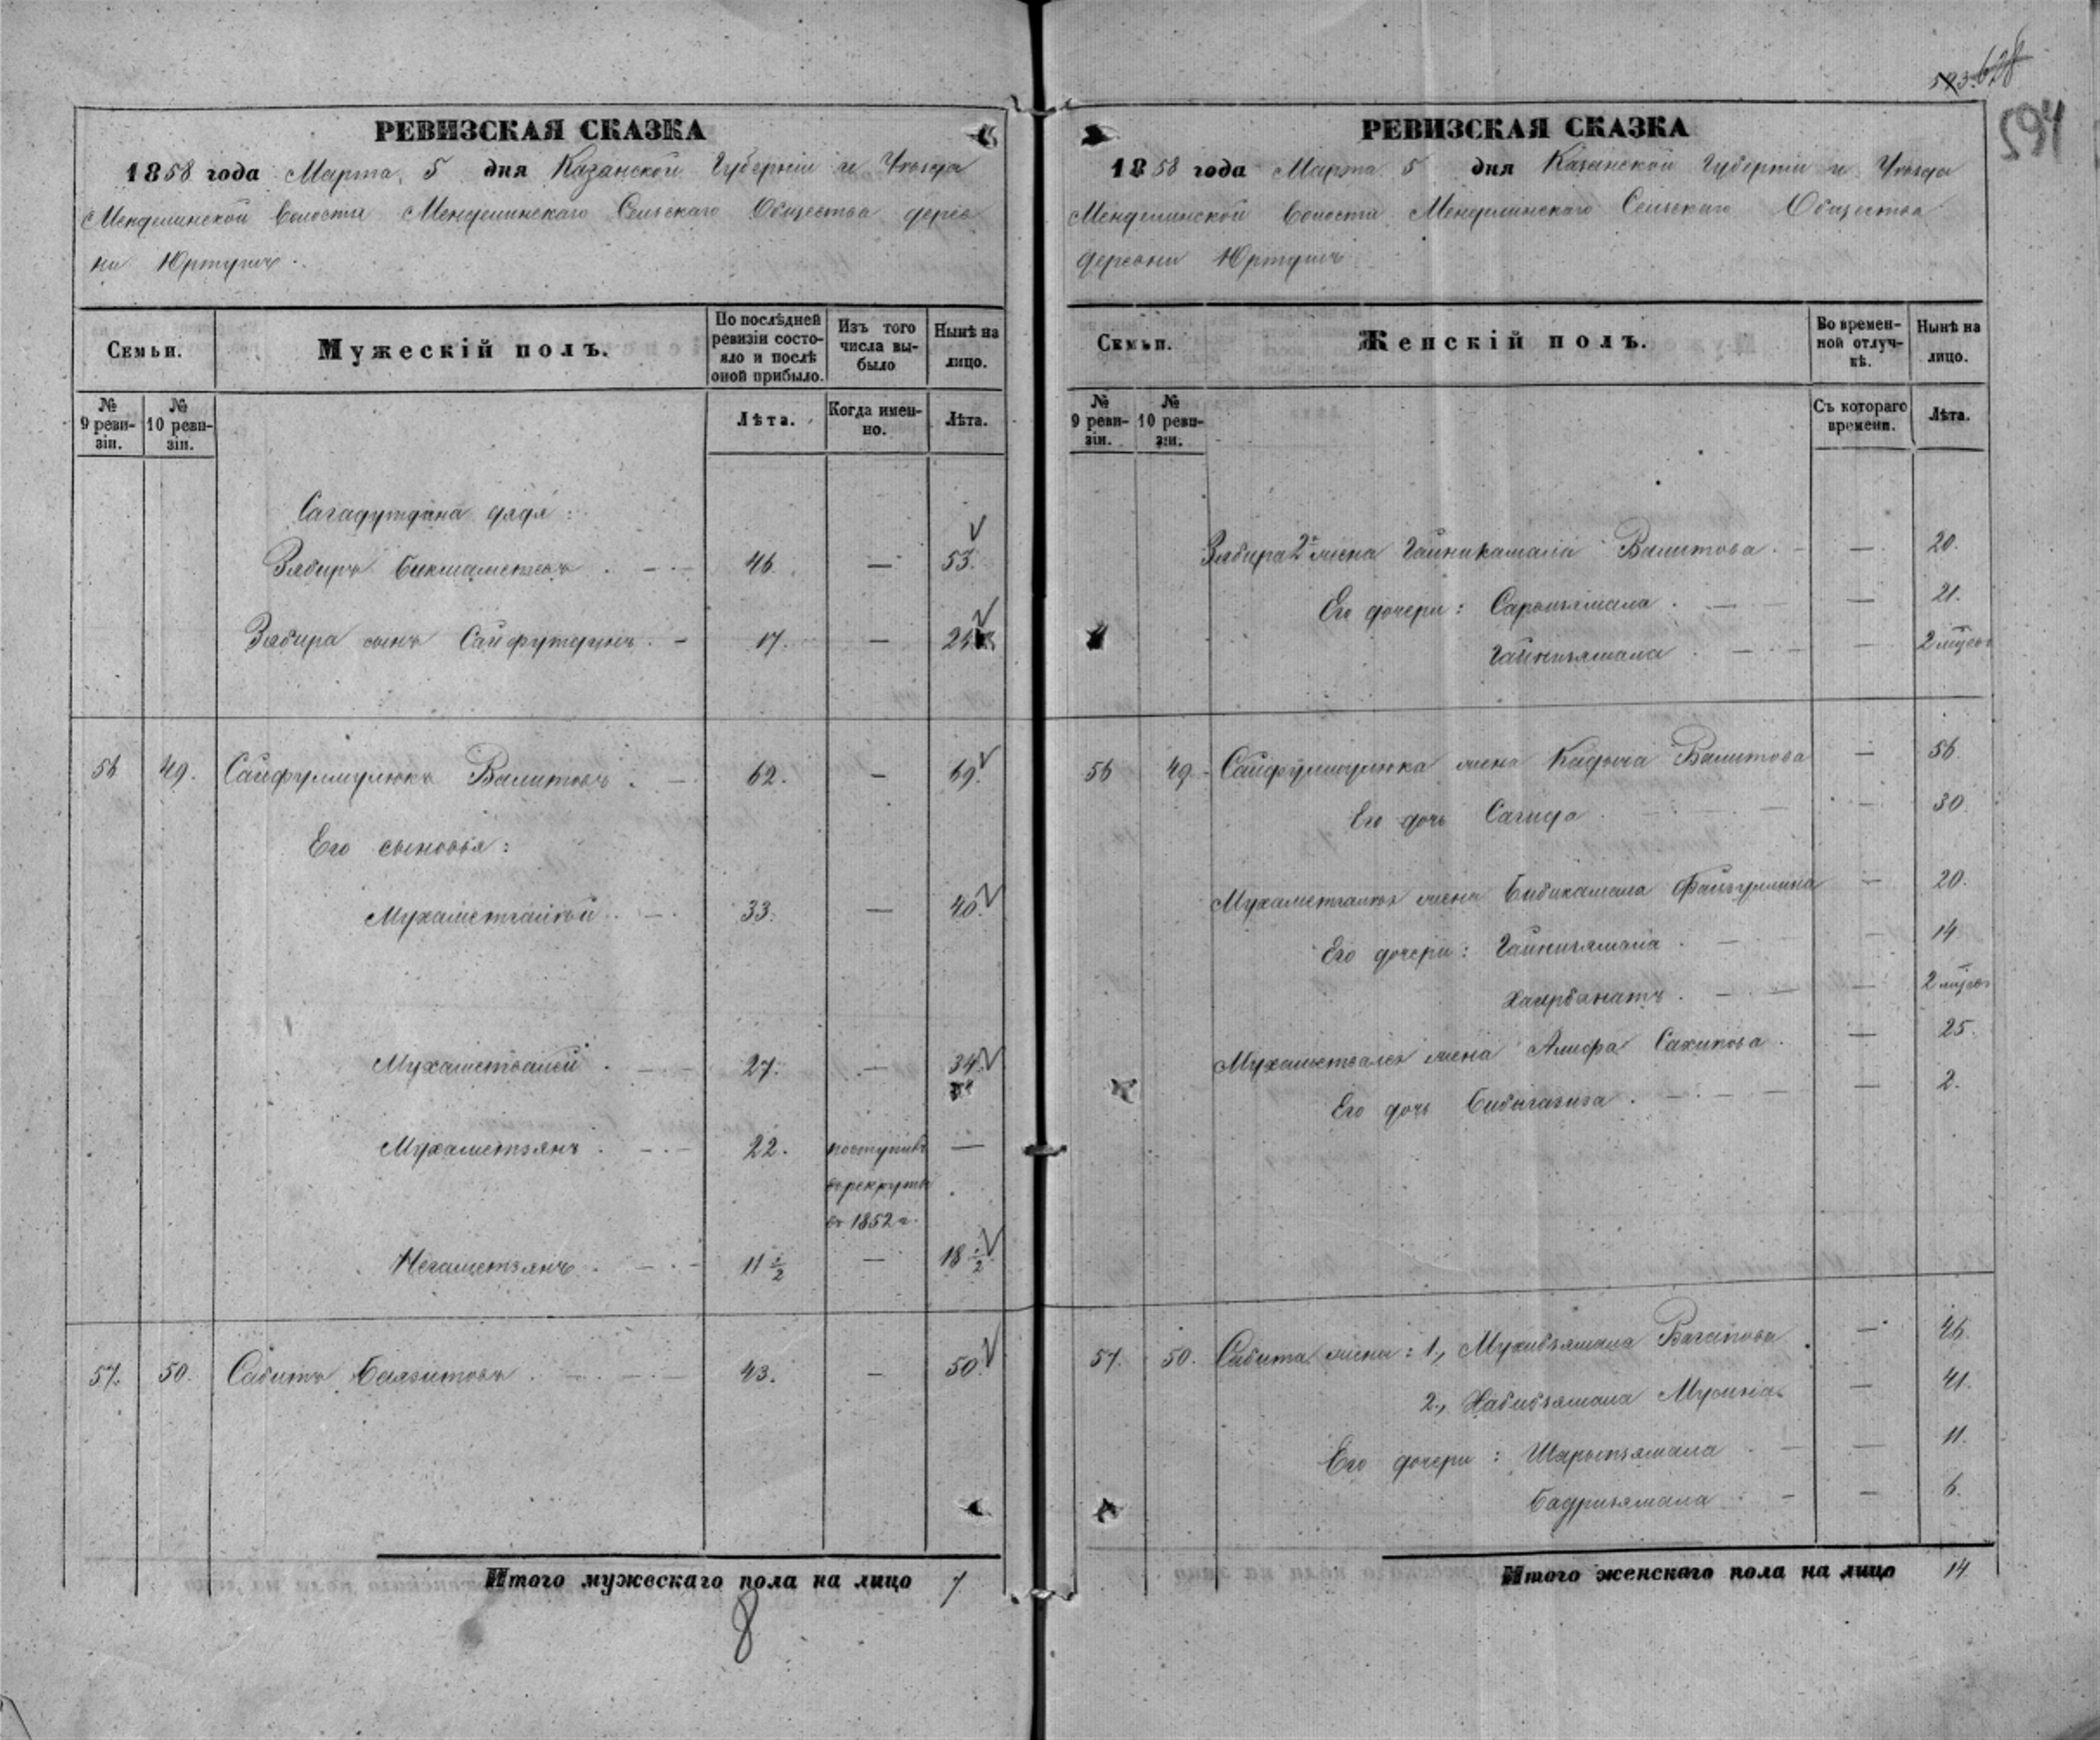 593 628
594
РЕВИЗСКАЯ СКАЗКА
1858 года Марта 5 дня Казанской Губерніи и Уѣзда
Менделинской Волости Менделинскаго Сельскаго Общества дерев
ни Юртушъ.
Семьи.
Мужескій полъ.
По послѣдней ревизіи состояло и послѣ оной прибыло.
Изъ того числа выбыло
Нынѣ на лицо.
№ 9 ревизіи.
№ 10 ревизіи.
Лѣта.
Когда именно.
Лѣта.
Сагадутдина дядя:
Забиръ Бикмаметевъ . - - 46. — 53.
Забира сынъ Сайфутдинъ . - 17. —
56 49. Сайфулмулюкъ Валитовъ . - 62. — 69.
Его сыновья:
Мухаметгалѣй . - . 33. — 40.
Мухаметвалей . - - 27. — 34.
Мухаметзянъ . - - 22. поступилъ —
въ рекруты
въ 1852 г.
Негаметзянъ . - - 11 1/2 — 18 1/2
57. 50. Сабитъ Баязитовъ . - - 43. — 50.
Итого мужескаго пола на лицо 7
8
РЕВИЗСКАЯ СКАЗКА
1858 года Марта 5 дня Казанской Губерніи и Уѣзда
Менделинской Волости Менделинскаго Сельскаго Общества
деревни Юртушъ
Семьи.
Женскій полъ.
Во временной отлучкѣ.
Нынѣ на лицо.
№ 9 ревизіи.
№ 10 ревизіи.
Съ котораго времени.
Лѣта.
Забира 2я жена Гайникамала Валитова . - — 20.
Его дочери: — 21.
Гайнизямала . - - — 2 мѣсец
56 49. Сайфулмулюка жена Валитова — 56.
Его дочь Сагида . — 30.
Мухаметгалѣя жена Бибикамала Файзуллина — 20.
Его дочери: Гайнизямала . - — 14
Хаербанатъ . - - — 2 мѣсец
Мухаметвалея жена Сакипова . — 25.
Его дочь Бибигазиза . - - — 2.
57. 50. Сабита жены: 1., Мухибзямала Вагапова . — 46.
2., Хабибзямала Мусина — 41.
Его дочери: Шарыпзямала . - — 11.
Бадризямала . - — 6.
Итого женскаго пола на лицо 14